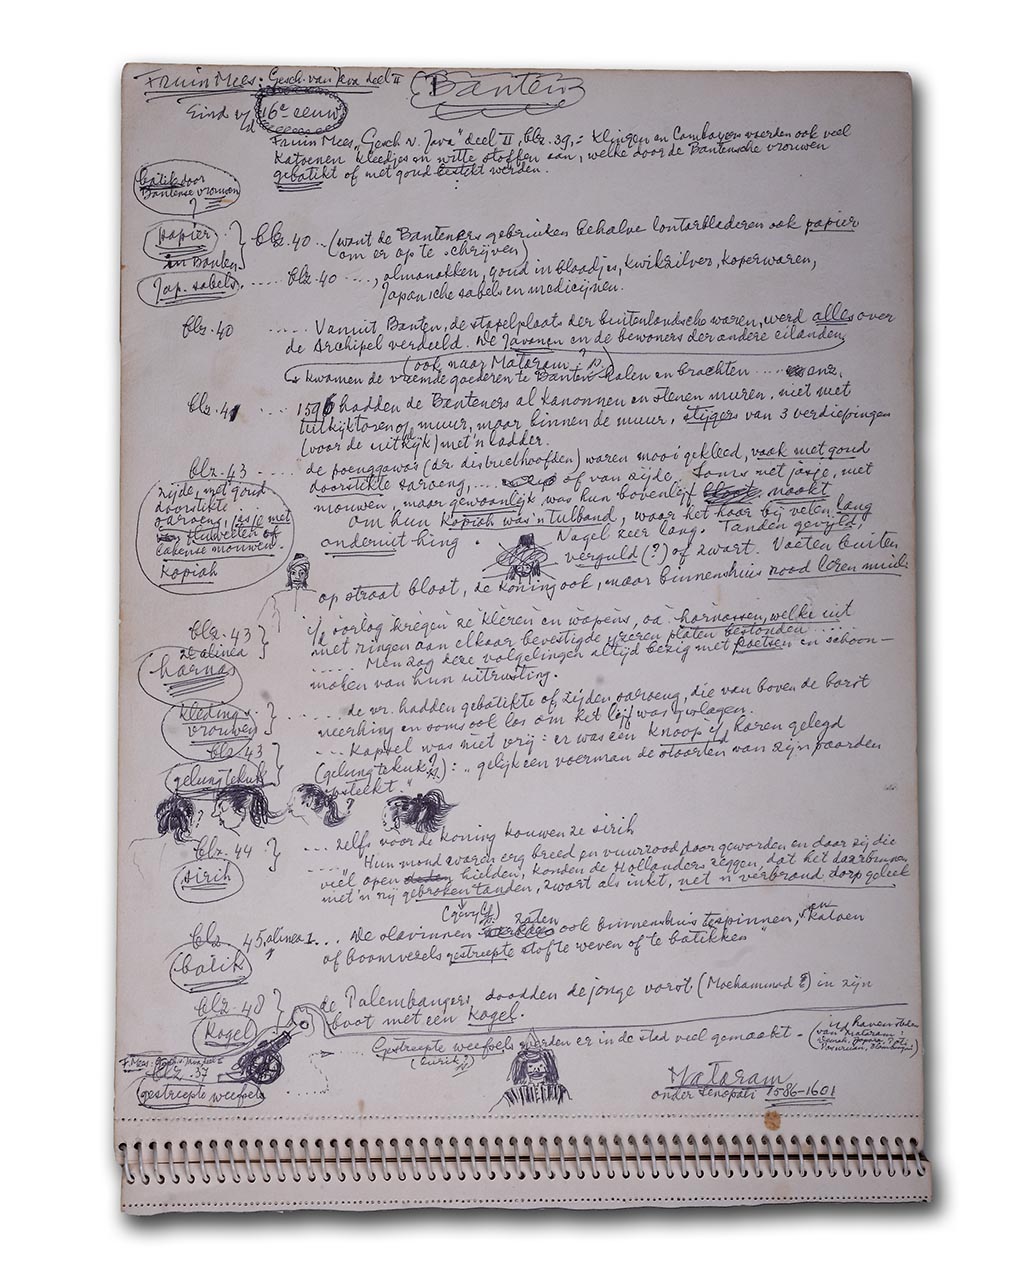 Fruin Mees: Gesch. van Java deel II
Banten
Eind v/d 16e eeuw
Fruin Mees „Gesch v. Java” deel II, blz. 39,= Klingen en Cambayers voerden ook veel
katoenen kleedjes en witte stoffen aan, welke door de Bantensche vrouwen
gebatikt of met goud bestikt werden.
batik door
Bantense vrouwen
?
papier
in Banten
blz. 40 .. (want de Banteners gebruiken behalve lontarbladeren ook papier
om er op te schrijven)
Jap. sabels ..... blz. 40 ...., almanakken, goud in blaadjes, kwikzilver, koperwaren,
Japansche sabels en medicijnen.
blz. 40 ..... Vanuit Banten, de stapelplaats der buitenlandsche waren, werd alles over
de Archipel verdeeld. De Javanen en de bewoners der andere eilanden
(ook naar Mataram?)
kwamen de vreemde goederen te Banten halen en brachten ..... enz.
blz. 41 .... 1596 hadden de Banteners al kanonnen en stenen muren, niet met
uitkijktoren op muur, maar binnen de muur, stijgers van 3 verdiepingen
(voor de uitkijk) met 'n ladder.
blz. 43 .... de poenggawas (der districthoofden) waren mooi gekleed, vaak met goud
doorstikte saroeng, .... of van zijde. Soms met jasje, met
mouwen, maar gewoonlijk was hun bovenlijf naakt
om hun kopiah was 'n tulband, waar het haar bij velen lang
onderuit hing. Nagel zeer lang. Tanden gevijld,
verguld (?) of zwart. Voeten buiten
op straat bloot, de koning ook, maar binnenshuis rood leren muil.
zijde, met goud
doorstikte
saroeng, jasje met
fluwelen of
lakense mouwen.
kopiah
blz. 43
2e alinea
harnas
i/d oorlog kregen ze kleren en wapens, oa harnassen, welke uit
met ringen aan elkaar bevestigde yzeren platen bestonden ....
..... Men zag deze volgelingen altijd bezig met poetsen en schoon-
maken van hun uitrusting.
kleding
vrouwen
blz 43
gelungtekuk
...... de vr. hadden gebatikte of zijden saroeng, die van boven de borst
neerhing en soms ook los om het lijf was geslagen.
.... Kapsel was niet vrij: er was een knoop i/d haren gelegd
(gelungtekuk?): „gelijk een voerman de staarten van zijn paarden
opsteekt.”
?
?
blz. 44
sirih
.... zelfs voor de koning kouwen ze sirih
.... Hun mond waren erg breed en vuurrood door geworden en daar zij die
veel open hielden, konden de Hollanders zeggen, dat het daarbinnen,
met 'n rij gebroken tanden, zwart als inkt, net 'n verbrand dorp geleek
blz 45, alinea 1 ... De slavinnen zaten ook binnenshuis te spinnen, om katoen
of boomvezels gestreepte stof te weven of te batikken”
batik
blz. 48
kogel
de Palembangers doodden de jonge vorst (Moehammad) in zijn
boot met een kogel.
blz. 37
gestreepte weefsels
Gestreepte weefsels werden er in de stad veel gemaakt -
(lurik?)
i/d havensteden
van Mataram:
Mataram
onder Senopati 1586-1601